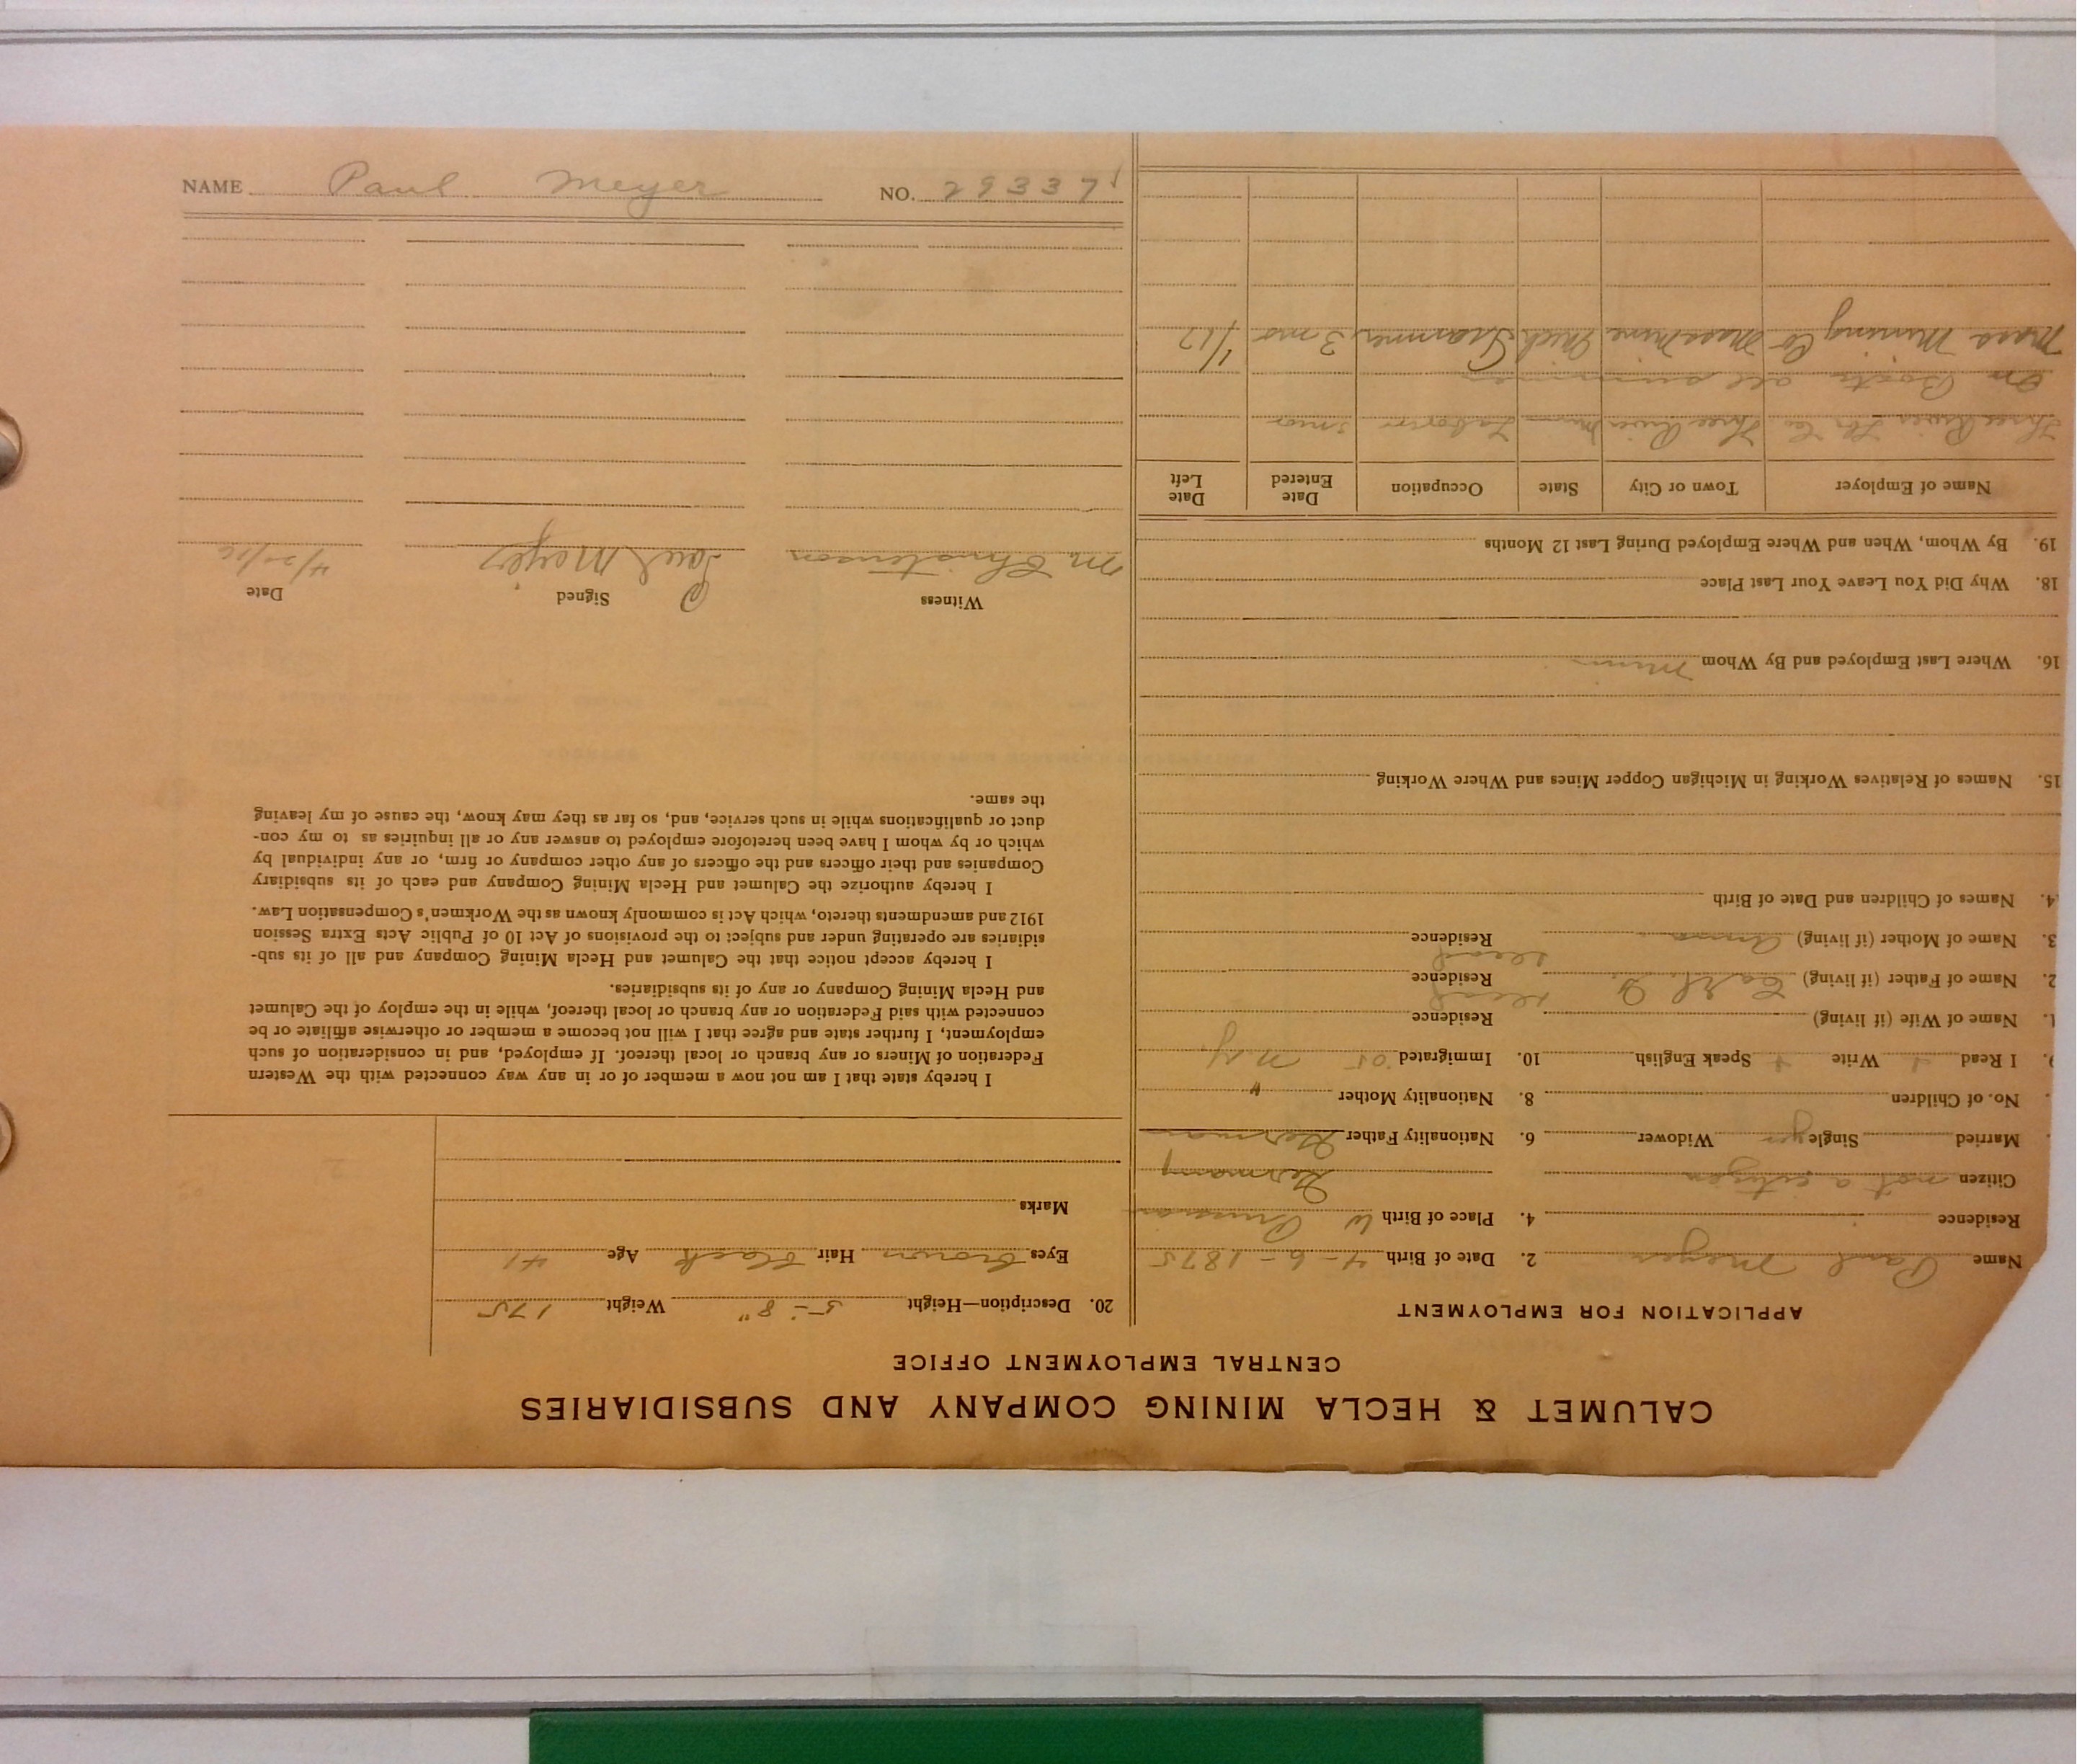 CALUMET & HECLA MINING COMPANY AND SUBSIDIARIES
CENTRAL EMPLOYMENT OFFICE
APPLICATION FOR EMPLOYMENT
Name Paul Meyer 2. Date of Birth 4-6-1875
Residence 4. Place of Birth W Prussia
Citizen not a citizen Germany
Married Single yes Widower 6. Nationality Father German
No. of Children 8. Nationality Mother "
I Read Write Speak English 10. Immigrated 05 N.Y.
1. Name of Wife (if living) Residence
2. Name of Father (if living) Carl Residence dead
3. Name of Mother (if living) Anna Residence dead
4. Names of Children and Date of Birth
15. Names of Relatives Working in Michigan Copper Mines and Where Working
16. Where Last Employed and By Whom
18. Why Did You Leave Your Last Place
19. By Whom, When and Where Employed During Last 12 Months
Name of Employer Town or City State Occupation Date Entered Date Left
Three Rivers Three River Laborer 3 mos
On Boats all summer
Mass Mining Co Mass Mine Mich 3 mo 1/17
20. Description—Height 5-8" Weight 175
Eyes brown Hair black Age 41
Marks
I hereby state that I am not now a member of or in any way connected with the Western
Federation of Miners or any branch or local thereof. If employed, and in consideration of such
employment, I further state and agree that I will not become a member or otherwise affiliate or be
connected with said Federation or any branch or local thereof, while in the employ of the Calumet
and Hecla Mining Company or any of its subsidiaries.
I hereby accept notice that the Calumet and Hecla Mining Company and all of its sub-
sidiaries are operating under and subject to the provisions of Act 10 of Public Acts Extra Session
1912 and amendments thereto, which Act is commonly known as the Workmen's Compensation Law.
I hereby authorize the Calumet and Hecla Mining Company and each of its subsidiary
Companies and their officers and the officers of any other company or firm, or any individual by
which or by whom I have been heretofore employed to answer any or all inquiries as to my con-
duct or qualifications while in such service, and, so far as they may know, the cause of my leaving
the same.
Witness Signed Date
M Christenson Paul Meyer 4/20/16
NAME Paul Meyer NO. 29337